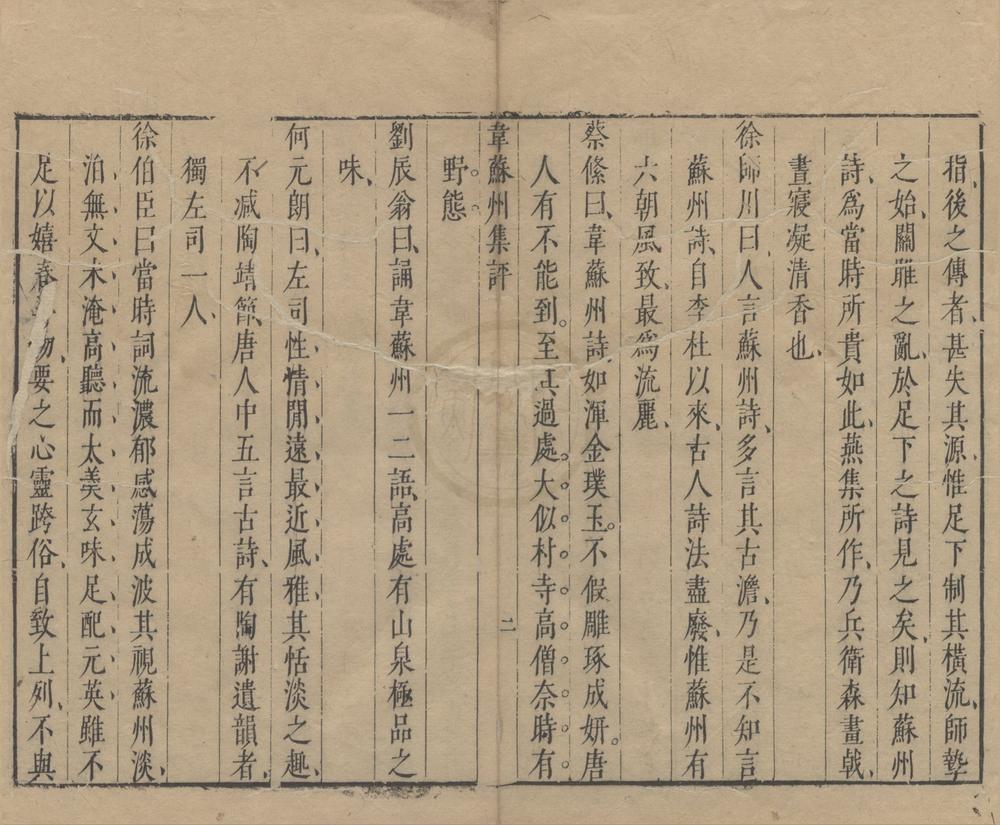 指後之傳者甚失其源惟足下制其橫流師摯
之始關雎之亂於足下之詩見之矣則知蘇州
詩為當時所貴如此燕集所作乃兵衛森畫戟
晝寢凝清香也
徐師川曰人言蘇州詩多言其古澹乃是不知言
蘇州詩自李杜以來古人詩法盡廢惟蘇州有
六朝風致最為流麗
蔡絛曰韋蘇州詩如渾金璞玉不假雕琢成妍唐
人有不能到至其過處大似村寺高僧奈時有
韋蘇州集評
二
野態
劉辰翁曰誦韋蘇州一二語高處有山泉極品之
味
何元朗曰左司性情閒遠最近風雅其恬淡之趣
不減陶靖節唐人中五言古詩有陶謝遺韻者
獨左司一人
徐伯臣曰當時詞流濃郁感蕩成波其視蘇州淡
泊無文未淹高聽而太羹玄味足配元英雖不
足以嬉春物要之心靈跨俗自致上列不與